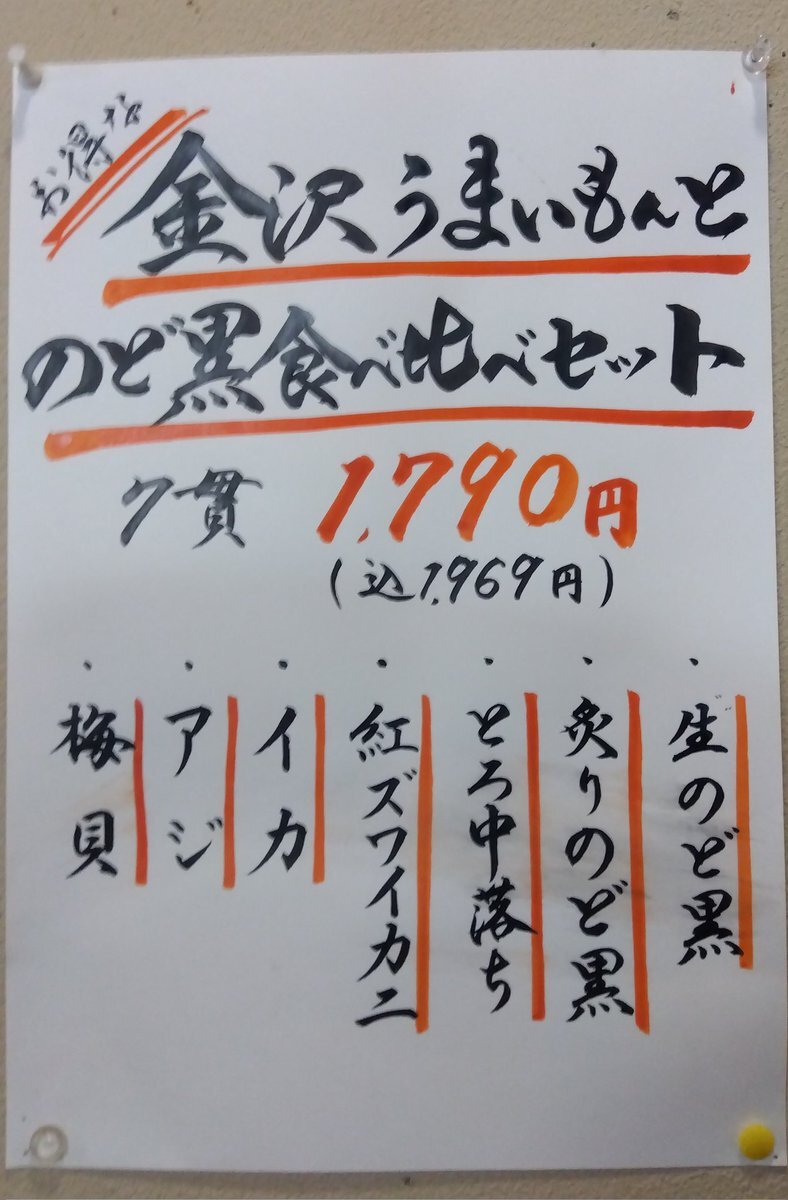 お得な
金沢うまいもんと
のど黒食べ比べセット
7貫 1,790円
(込1,969円)
・生のど黒
・炙りのど黒
・とろ中落ち
・紅ズワイカニ
・イカ
・アジ
・梅貝